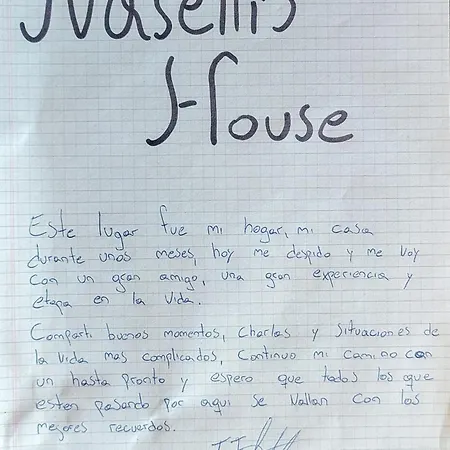 Naselli's
House
Este lugar fue mi hogar, mi casa
durante unos meses, hoy me despido y me voy
con un gran amigo, una gran experiencia y
etapa en la vida.
Comparti buenos momentos, charlas y situaciones de
la vida mas complicados, continuo mi camino con
un hasta pronto y espero que todos los que
esten pasando por aqui se vallan con los
mejores recuerdos.